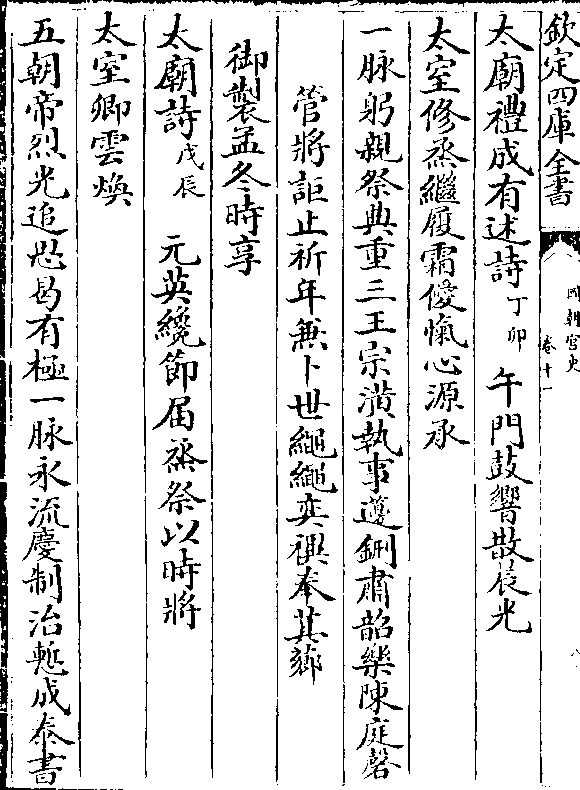 欽定四庫全書
國朝宮史
卷十一
太廟禮成有述詩丁卯　午門鼓響散晨光
太室修烝繼履霜僾愾心源承
一脉躬親祭典重三王宗潢執事籩鉶肅韶樂陳庭磬
管將詎止祈年無卜世繩繩奕禩奉其薌
御製孟冬時享
太廟詩戊辰　元英纔節届烝祭以時將
太室卿雲煥
五朝帝烈光追思曷有極一脉永流慶制治慙成泰書